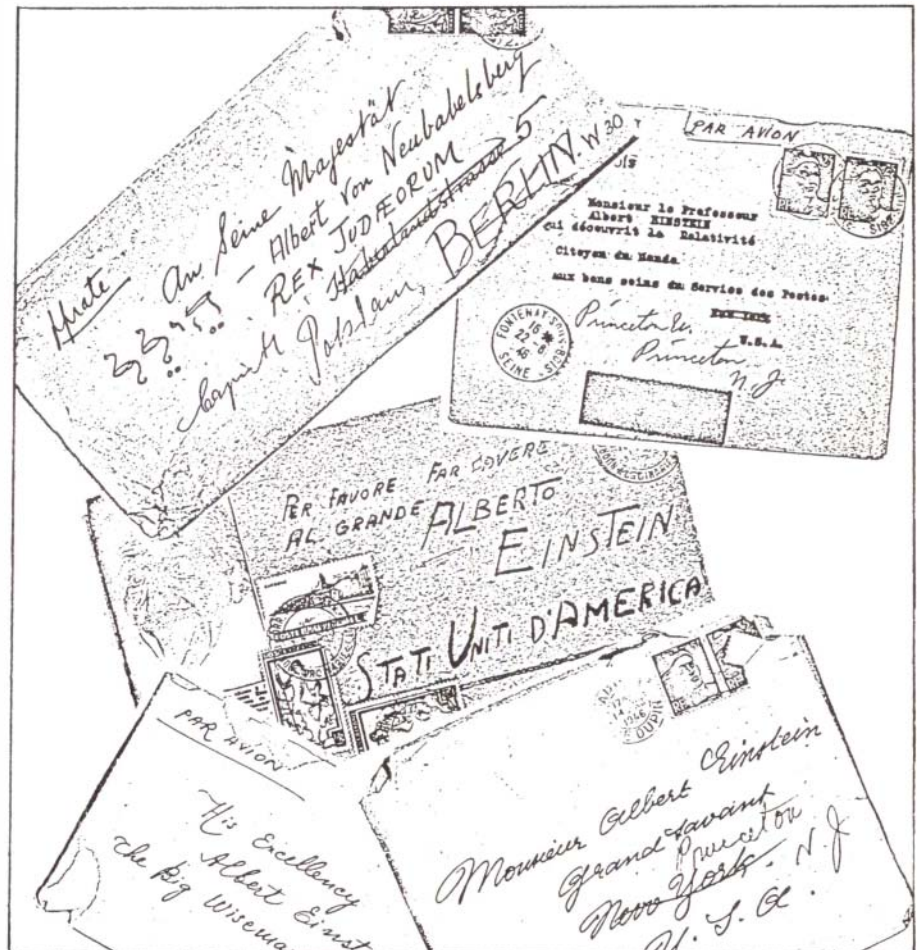 An Seine Majestät
- Albert von Neubabelsberg
REX JUDÆORUM
5
Potsdam BERLIN. W 30
PAR AVION
Monsieur le Professeur
Albert EINSTEIN
qui découvrit la Relativité
Citoyen du Monde
aux bons soins du Service des Postes
NEW YORK
U.S.A.
Princeton
N. J.
FONTENAY-SOUS-BOIS
16
22-6
46
SEINE
PER FAVORE FAR COVERE
AL GRANDE ALBERTO
EINSTEIN
STATI UNITI D'AMERICA
PAR AVION
His Excellency
Albert Einst
the Big Wisema
1946
Monsieur Albert Einstein
Grand savant
Princeton
New York. N. J
U. S. A.